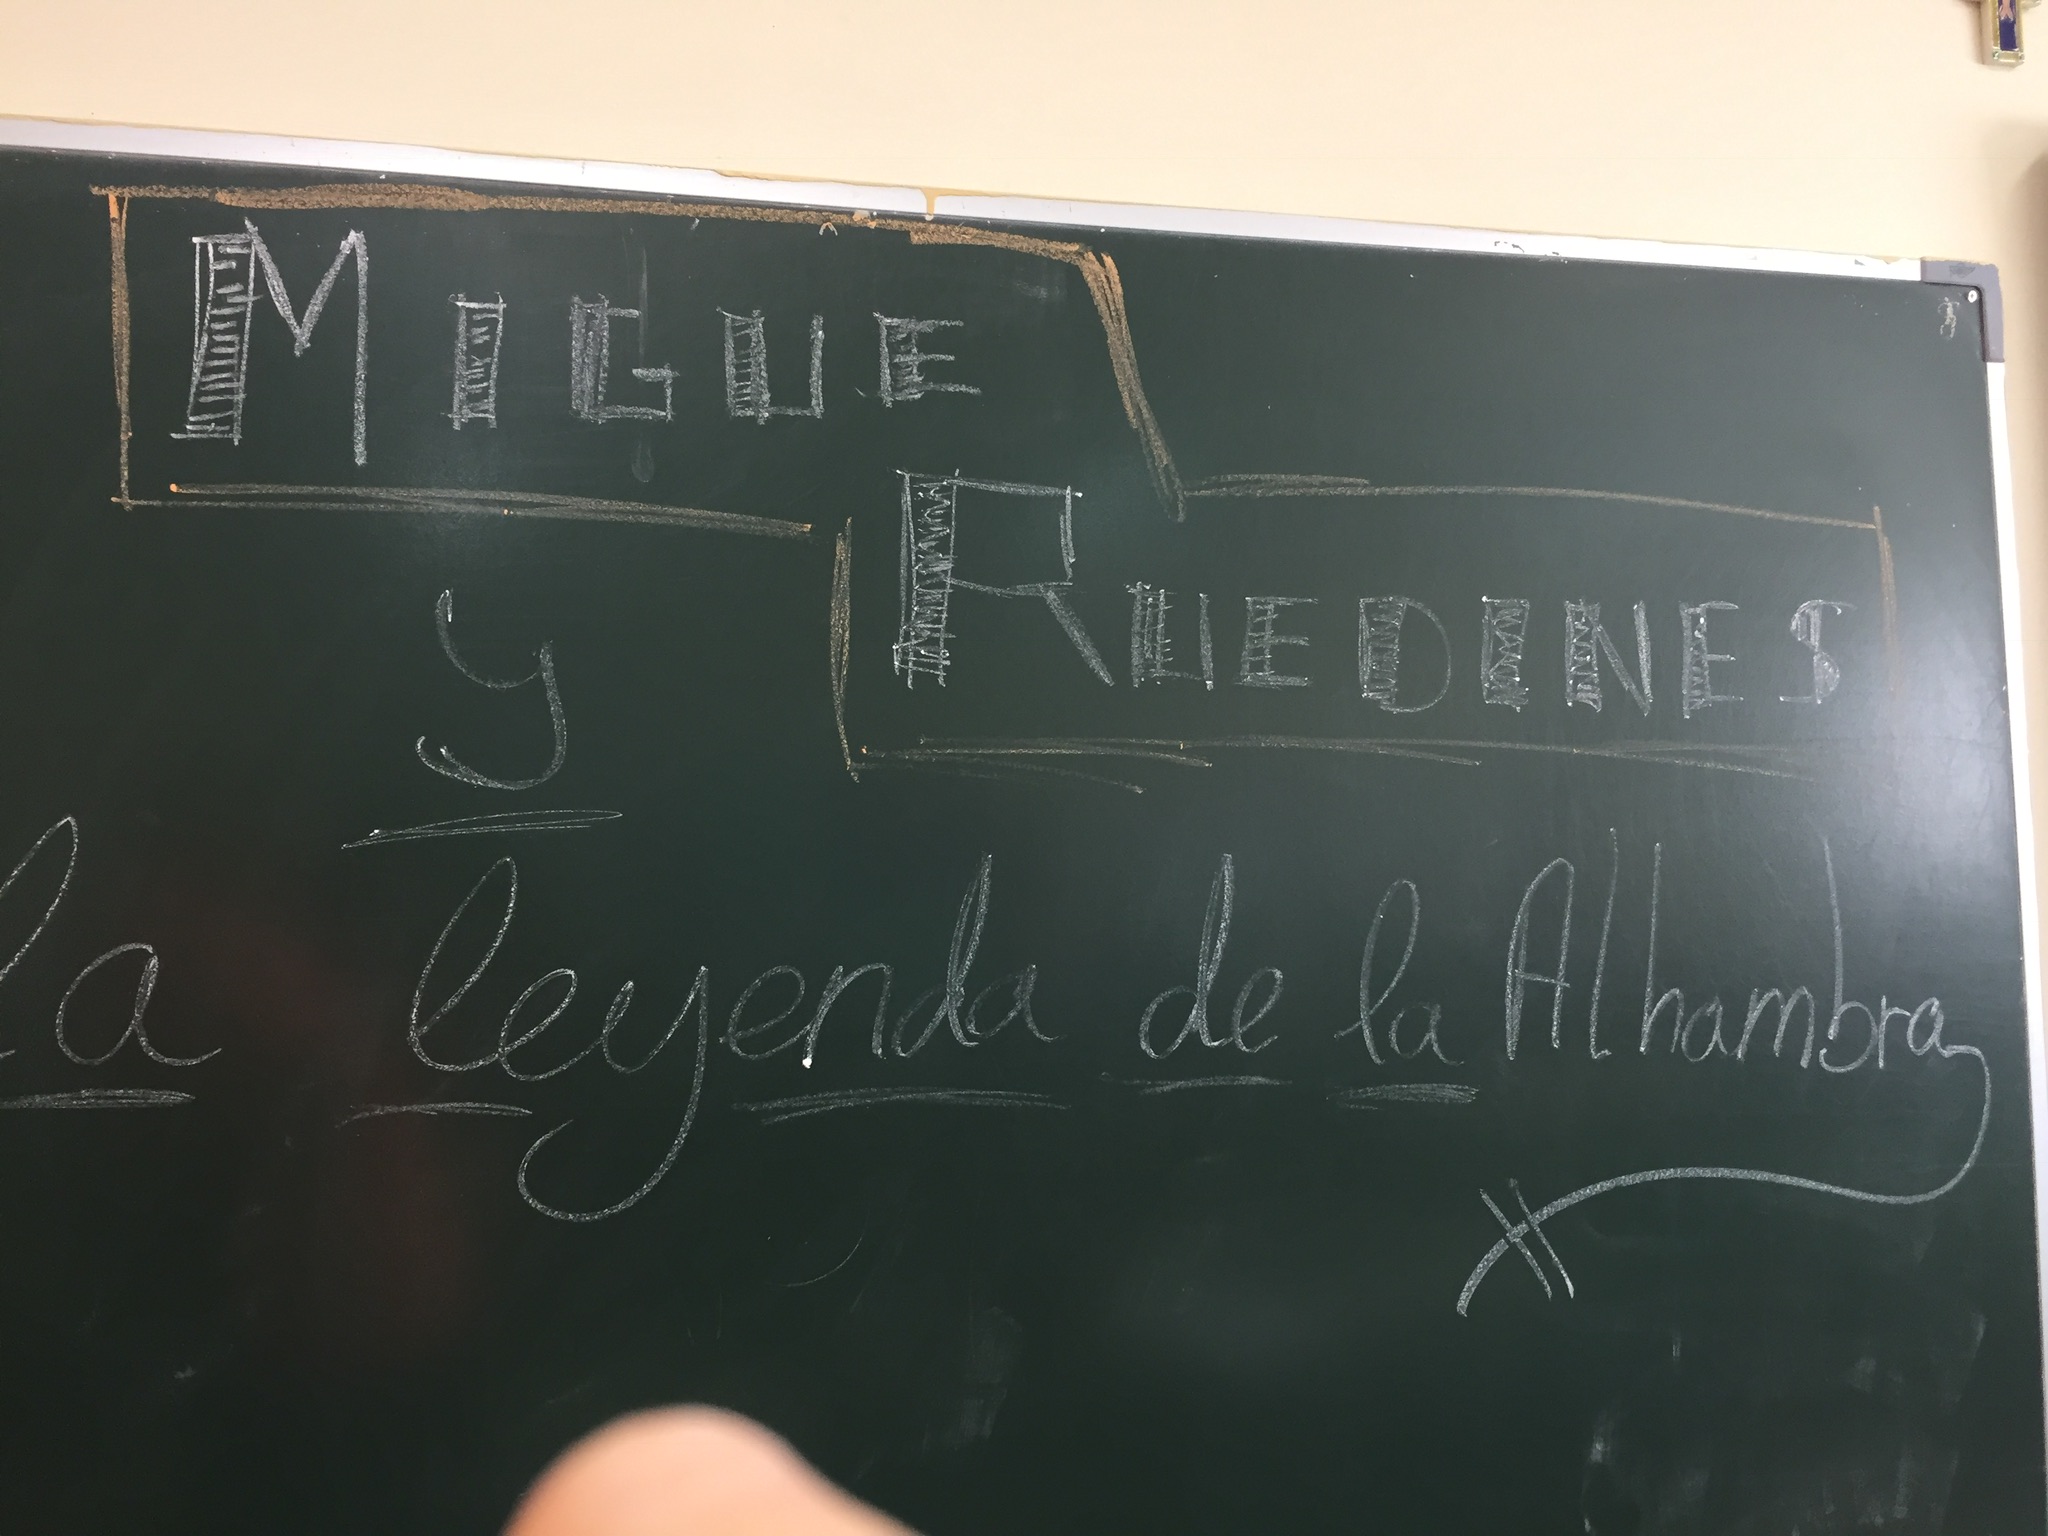 MIGUE
RUEDINES
y
La leyenda de la Alhambra